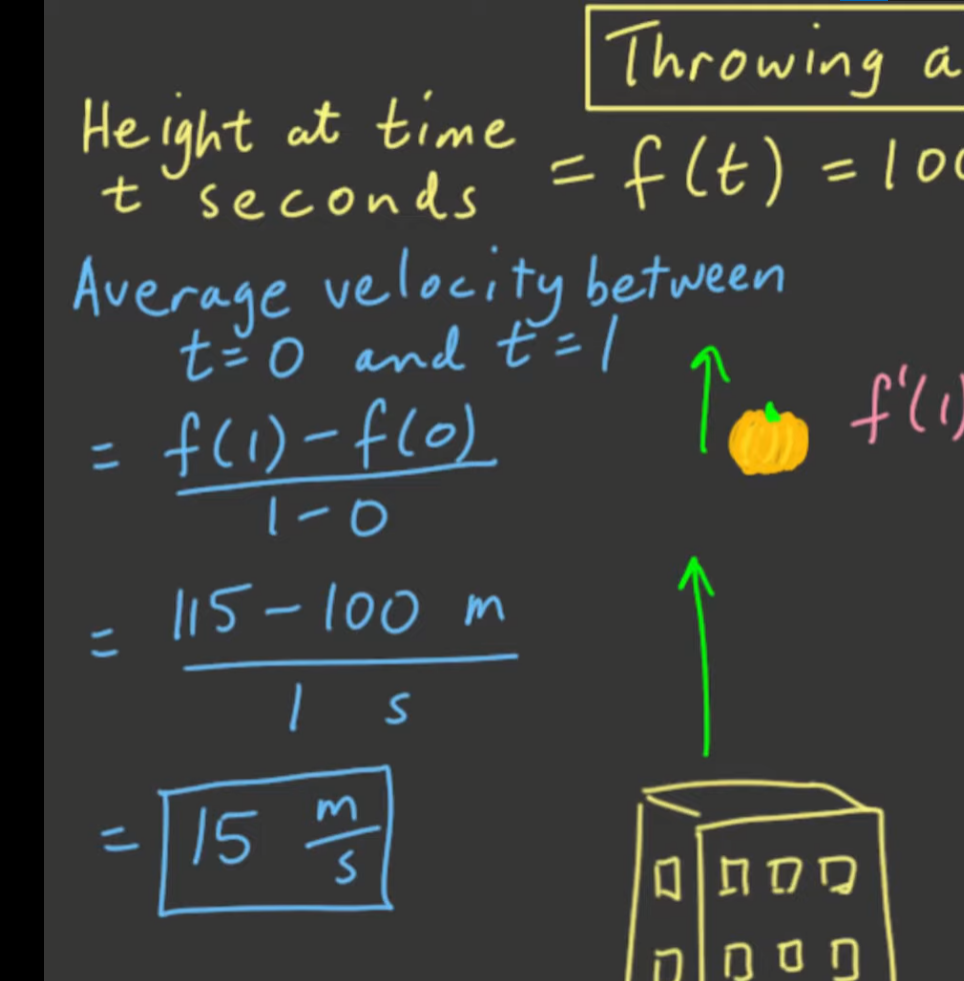 Throwing a
Height at time
t seconds = f(t) = 100
Average velocity between
t=0 and t=1
= f(1)-f(0)
1-0
= 115-100 m
1 s
= 15 m
s
f'(1)